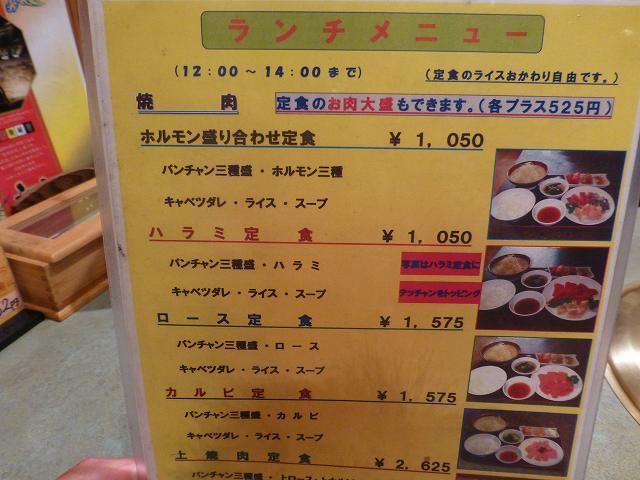 ランチメニュー
(12:00～14:00まで)
(定食のライスおかわり自由です。)
焼肉
定食のお肉大盛もできます。(各プラス525円)
ホルモン盛り合わせ定食 ¥1,050
パンチャン三種盛・ホルモン三種
キャベツダレ・ライス・スープ
ハラミ定食 ¥1,050
パンチャン三種盛・ハラミ
写真はハラミ定食に
キャベツダレ・ライス・スープ
テッチャンをトッピング
ロース定食 ¥1,575
パンチャン三種盛・ロース
キャベツダレ・ライス・スープ
カルビ定食 ¥1,575
パンチャン三種盛・カルビ
キャベツダレ・ライス・スープ
上焼肉定食 ¥2,625
パンチャン三種盛・上ロース・上カルビ